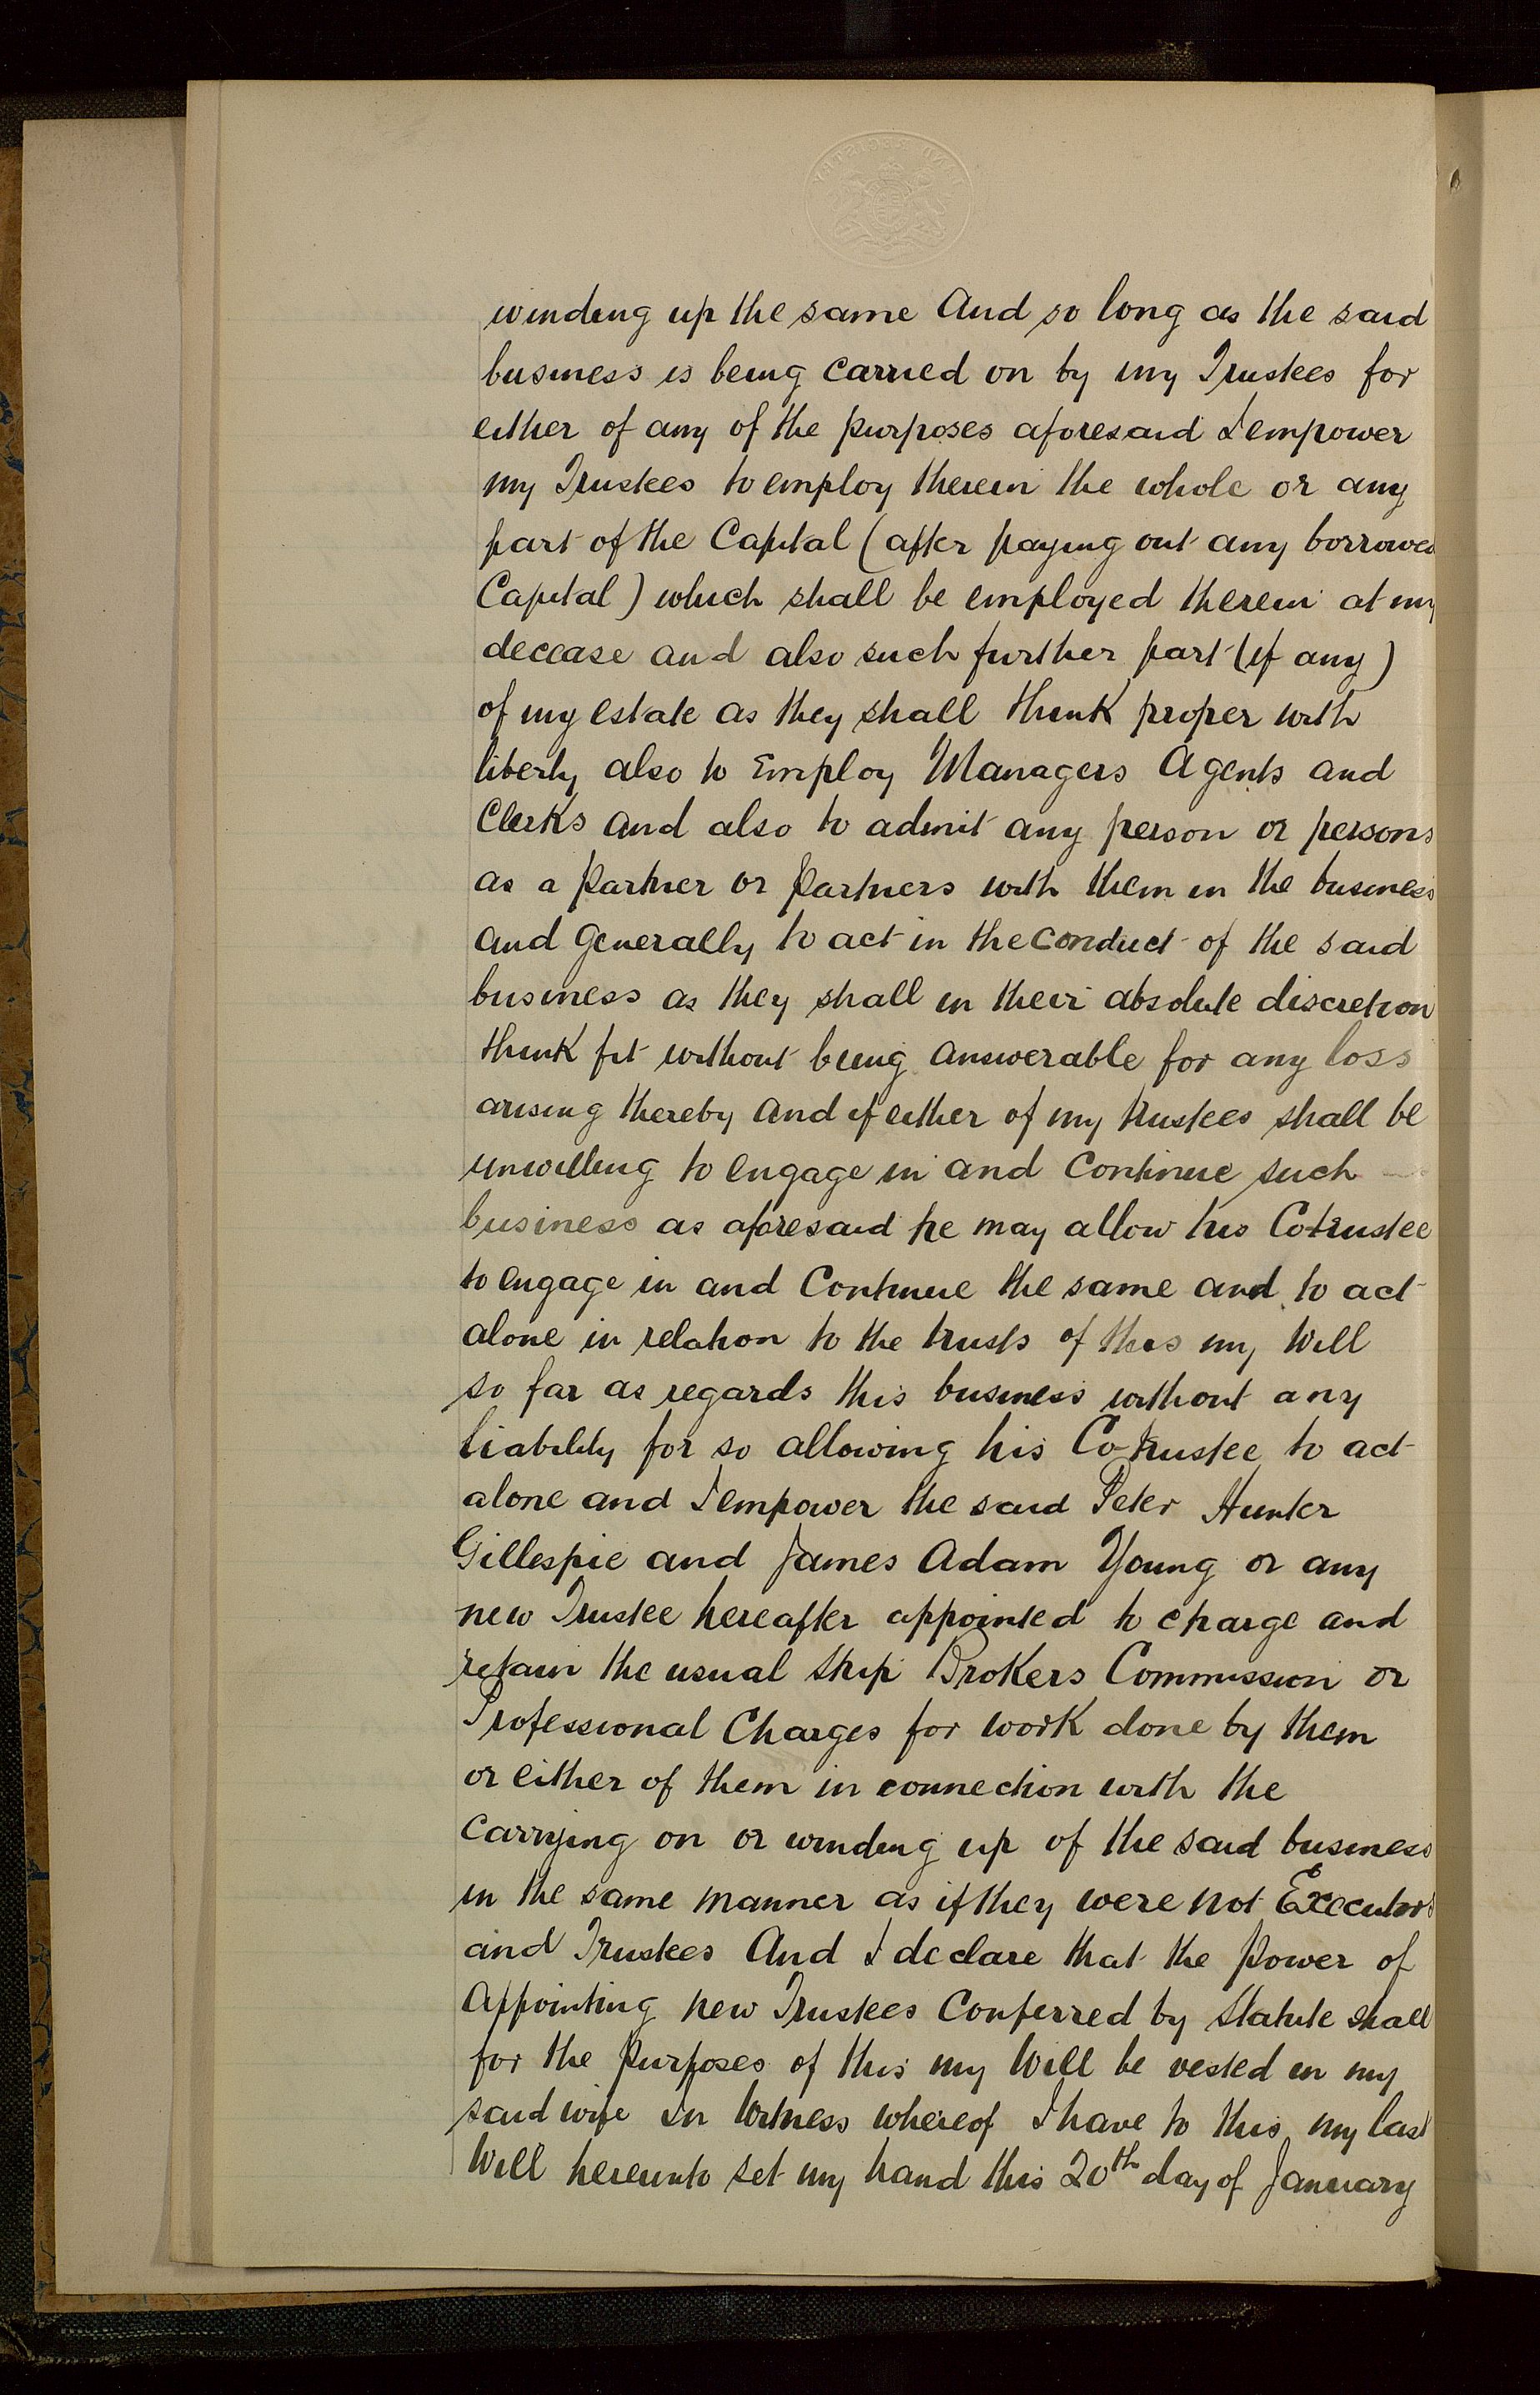 winding up the same And so long as the said
business is being carried on by my Trustees for
either of any of the purposes aforesaid I empower
my Trustees to employ therein the whole or any
part of the Capital (after paying out any borrowed
Capital) which shall be employed therein at my
decease and also such further part (if any)
of my estate as they shall think proper with
liberty also to Employ Managers Agents and
Clerks and also to admit any person or persons
as a partner or partners with them in the business
and generally to act in the conduct of the said
business as they shall in their absolute discretion
think fit without being answerable for any loss
arising thereby and if either of my trustees shall be
unwilling to engage in and continue such
business as aforesaid he may allow his Cotrustee
to engage in and Continue the same and to act
alone in relation to the trusts of this my Will
so far as regards this business without any
liability for so allowing his Co-trustee to act
alone and I empower the said Peter Hunter
Gillespie and James Adam Young or any
new Trustee hereafter appointed to charge and
retain the usual Ship Brokers Commission or
Professional Charges for work done by them
or either of them in connection with the
carrying on or winding up of the said business
in the same manner as if they were not Executors
and Trustees And I declare that the power of
appointing new Trustees Conferred by Statute shall
for the purposes of this my Will be vested in my
said wife In Witness whereof I have to this my last
Will hereunto set my hand this 20th day of January